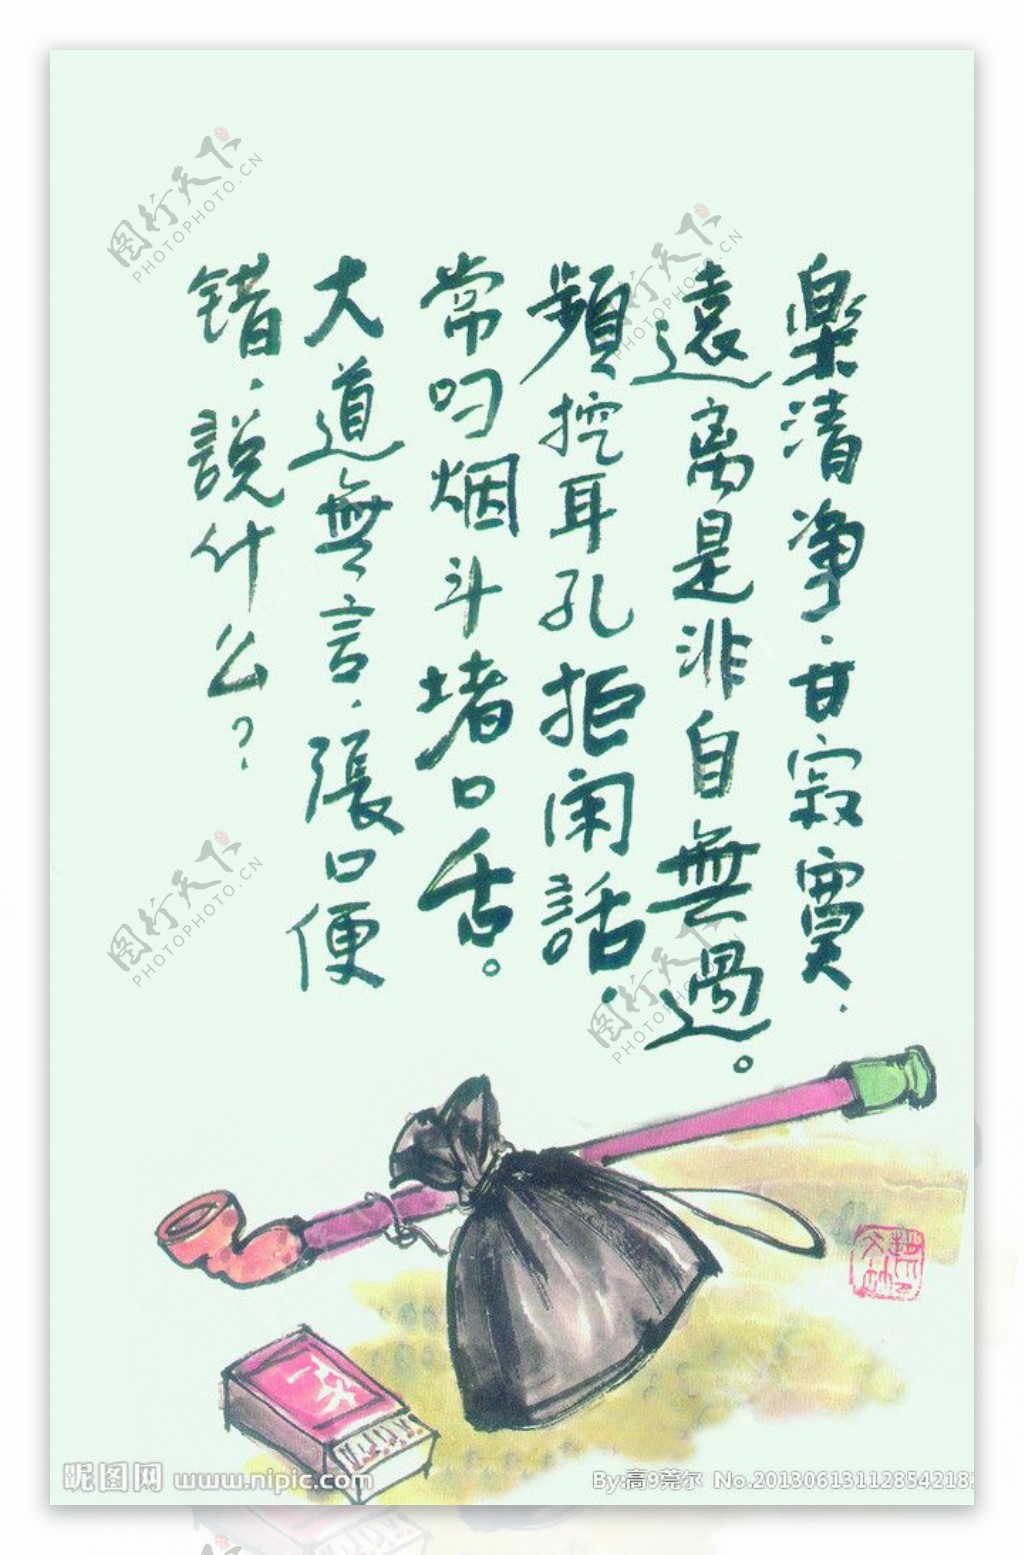 樂清净、甘寂寞、
遠离是非自無過。
頻挖耳孔拒闲話、
常叼烟斗堵口舌。
大道無言、張口便
错、説什么？
图行天下
PHOTOPHOTO.CN
图行天下
PHOTOPHOTO.CN
图行天下
PHOTOPHOTO.CN
图行天下
PHOTOPHOTO.CN
昵图网 www.nipic.com
By:高9莞尔 No.20130613112854218